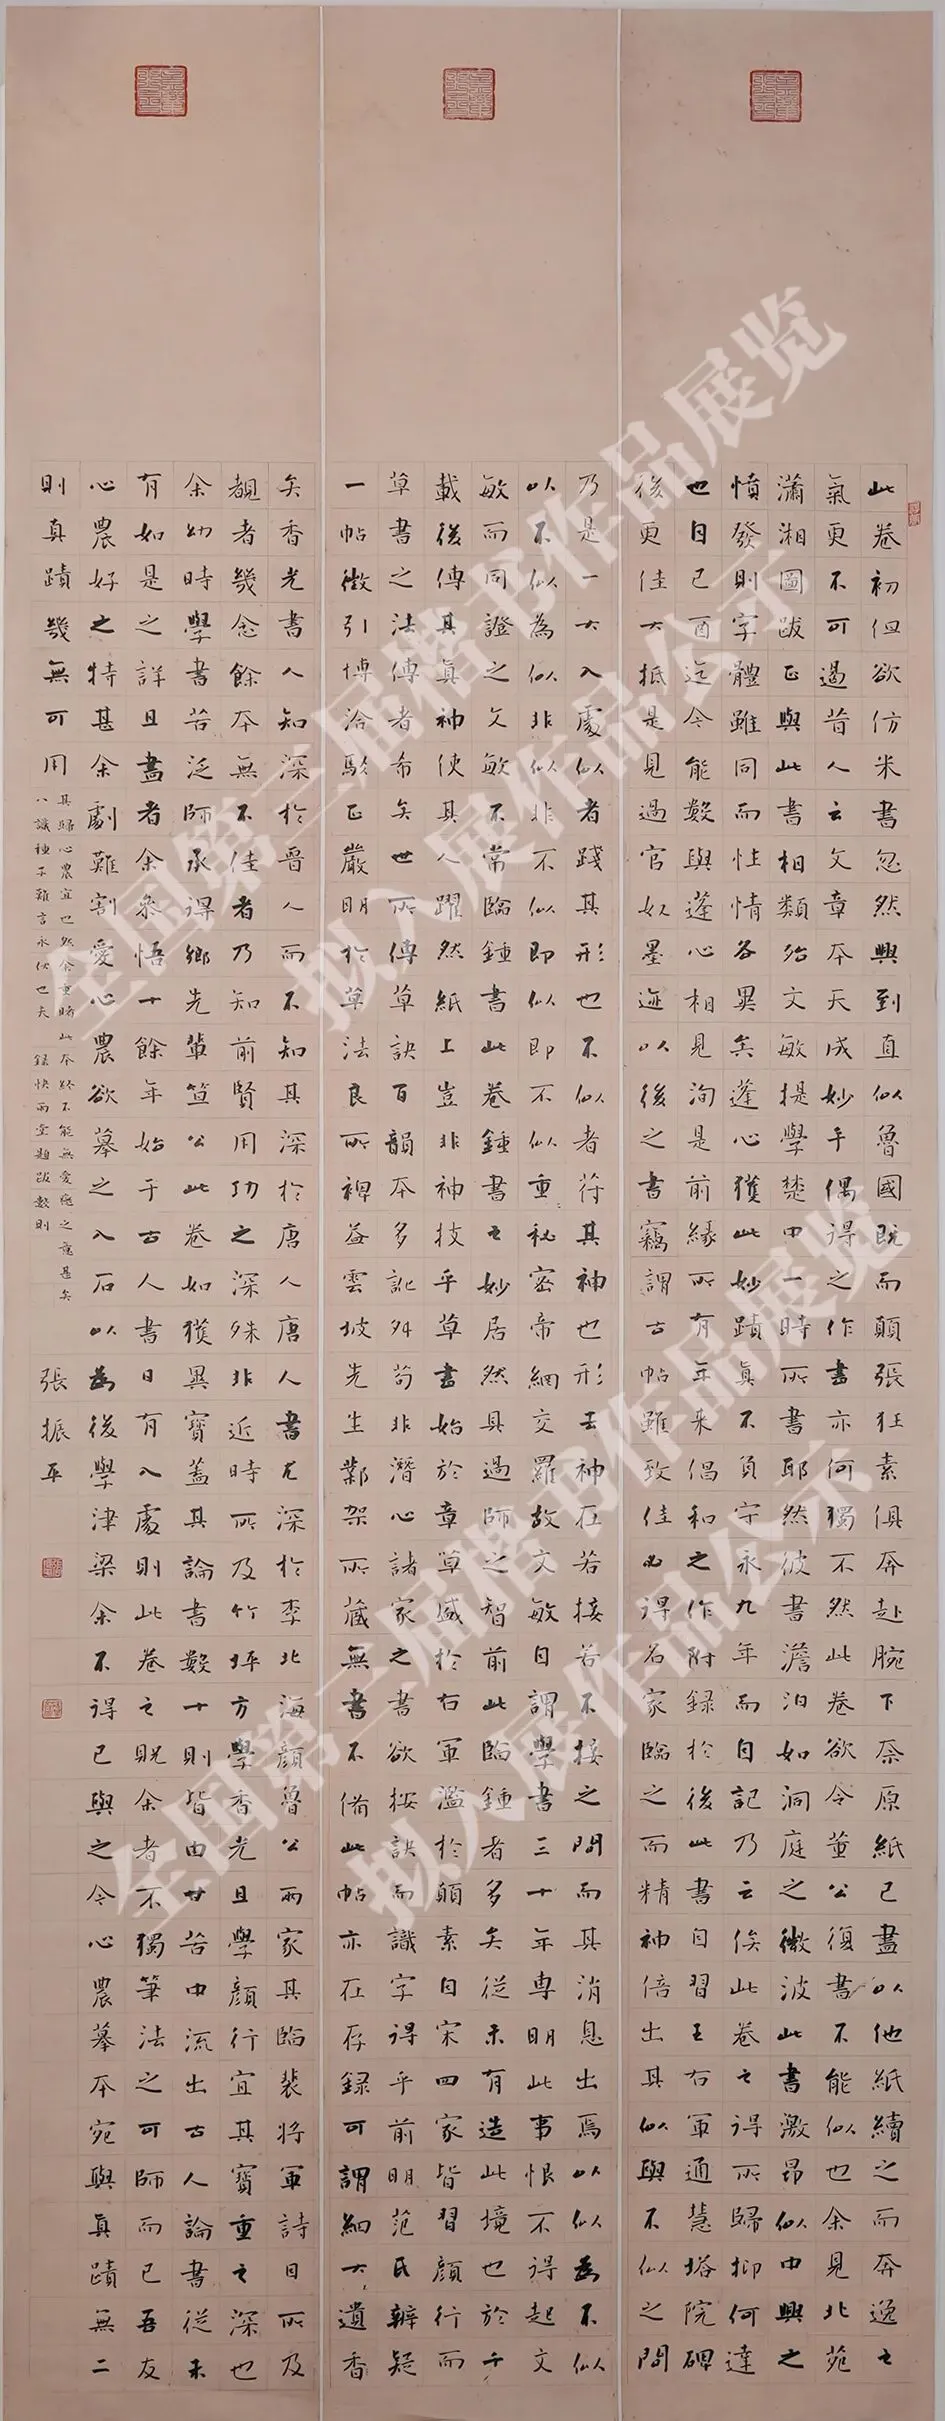 此卷初但欲仿米書忽然興到直似魯國既而顛張狂素俱奔赴腕下奈原紙已盡以他紙續之而奔逸之
氣更不可遏昔人云文章本天成妙手偶得之作書亦何獨不然此卷欲令董公復書不能似也余見北苑
瀟湘圖跋正與此書相類殆文敏提學楚中一時所書耶然彼書澹泊如洞庭之微波此書激昂似中興之
憤發則字體雖同而性情各異矣蓬心獲此妙蹟真不負守永九年而自記乃云俟此卷之得所歸抑何達
也自己酉迄今能數與蓬心相見洵是前緣所有年來倡和之作附録於後此書自習王右軍通慧塔院碑
後更佳大抵是見過官奴墨迹以後之書竊謂古帖雖致佳必得名家臨之而精神倍出其似與不似之間
乃是一大入處似者踐其形也不似者符其神也形去神在若接若不接之間而其消息出焉以似為不似
以不似為似非似非不似即似即不似重秘密帝網交羅故文敏自謂學書三十年専明此事恨不得起文
敏而同證之文敏不常臨鍾書此卷鍾書之妙居然具過師之智前此臨鍾者多矣從未有造此境也於千
載後傳其真神使其人躍然紙上豈非神技乎草書始於章草盛於右軍濫於顛素自宋四家皆習顏行而
草書之法傳者希矣世所傳草訣百韻本多訛舛苟非潛心諸家之書欲按訣而識字得乎前明范氏辨疑
一帖徵引博洽駁正嚴明於草法良所裨益雲坡先生鄴架所藏無書不備此帖亦在存録可謂細大遺香
矣香光書人知深於晉人而不知其深於唐人唐人書尤深於李北海顏魯公兩家其臨裴將軍詩目所及
覩者幾念餘本無不佳者乃知前賢用功之深殊非近時所及竹坪方學香光且學顏行宜其寶重之深也
余幼時學書苦泛師承得鄉先輩笪公此卷如獲異寶蓋其論書數十則皆由甘苦中流出古人論書從未
有如是之詳且盡者余參悟十餘年始于古人書日有入處則此卷之貺余者不獨筆法之可師而已吾友
心農好之特甚余劇難割愛心農欲摹之入石以為後學津梁余不得已與之今心農摹本宛與真蹟無二
則真蹟幾無可用
其歸心農宜也然余重睹此本終不能無愛戀之意甚矣
八識種子難言永伏也夫 録快雨堂題跋數則
張振平
全国第三届楷书作品展览
拟入展作品公示
全国第三届楷书作品展览
拟入展作品公示